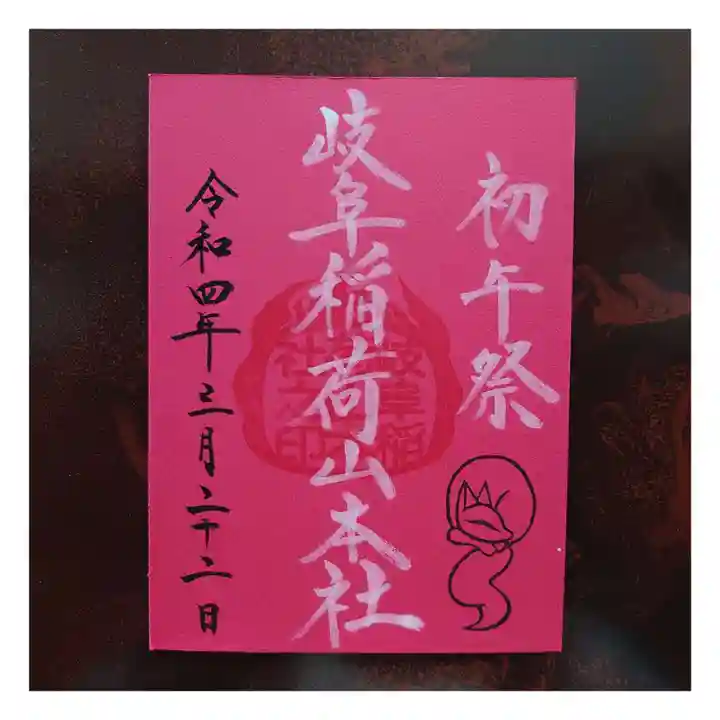 初午祭
岐阜稲荷山本社
令和四年三月二十二日